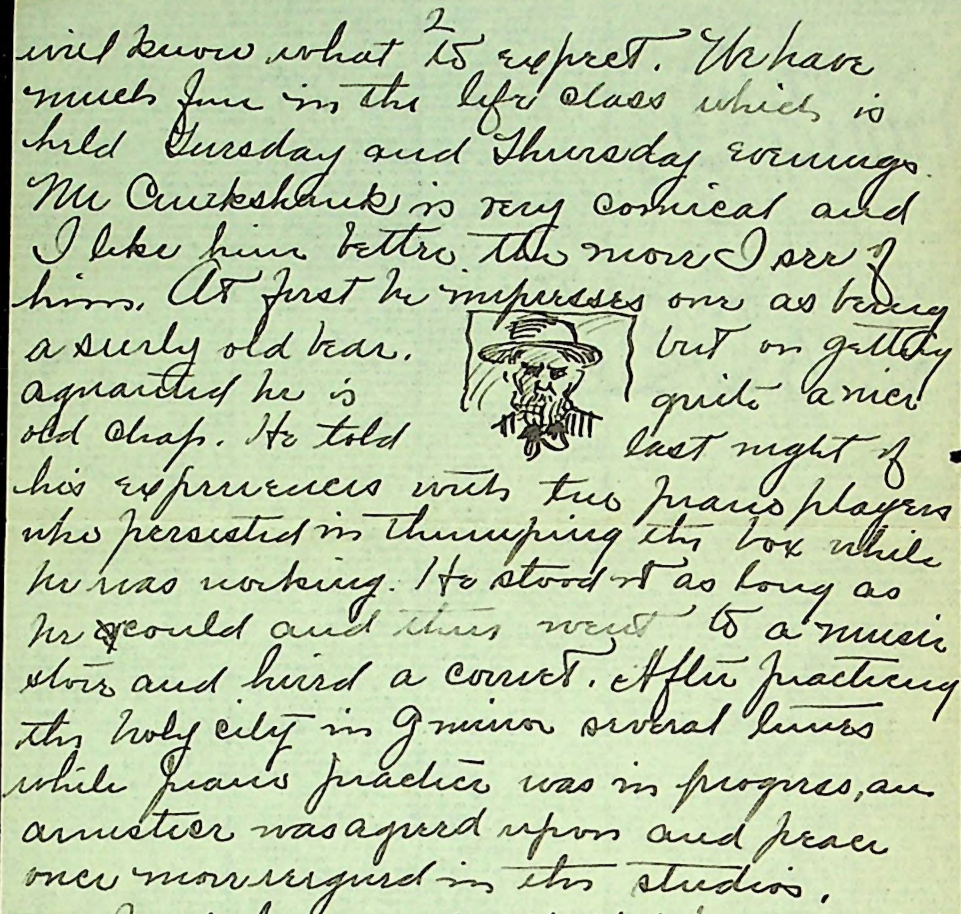 2
will know what to expect. We have
much fun in the life class which is
held Tuesday and Thursday evenings.
Mr Cruikshank is very comical and
I like him better the more I see of
him. At first he impresses one as being
a surly old bear. but on getting
aquanted he is quite a nice
old chap. He told last night of
his experiences with two piano players
who persisted in thumping the box while
he was working. He stood it as long as
he could and then went to a music
store and hired a cornet. After practicing
the holy city in G minor several times
while piano practice was in progress, an
armistice was agreed upon and peace
once more reigned in the studios.